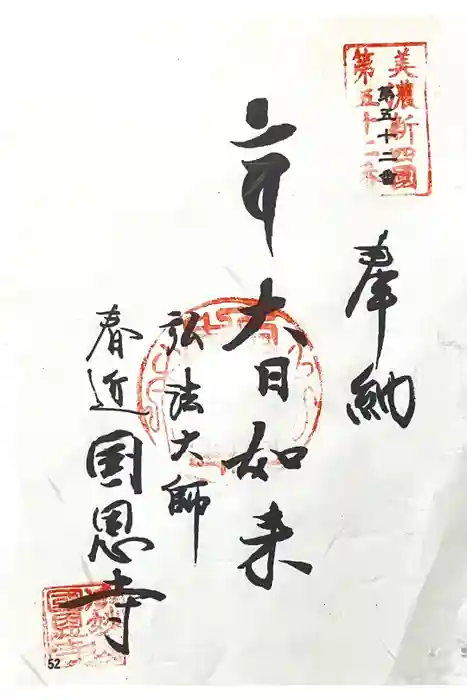 美濃新四國
第五十二番
第五十二番
奉納
大日如来
弘法大師
春近 国恩寺
52